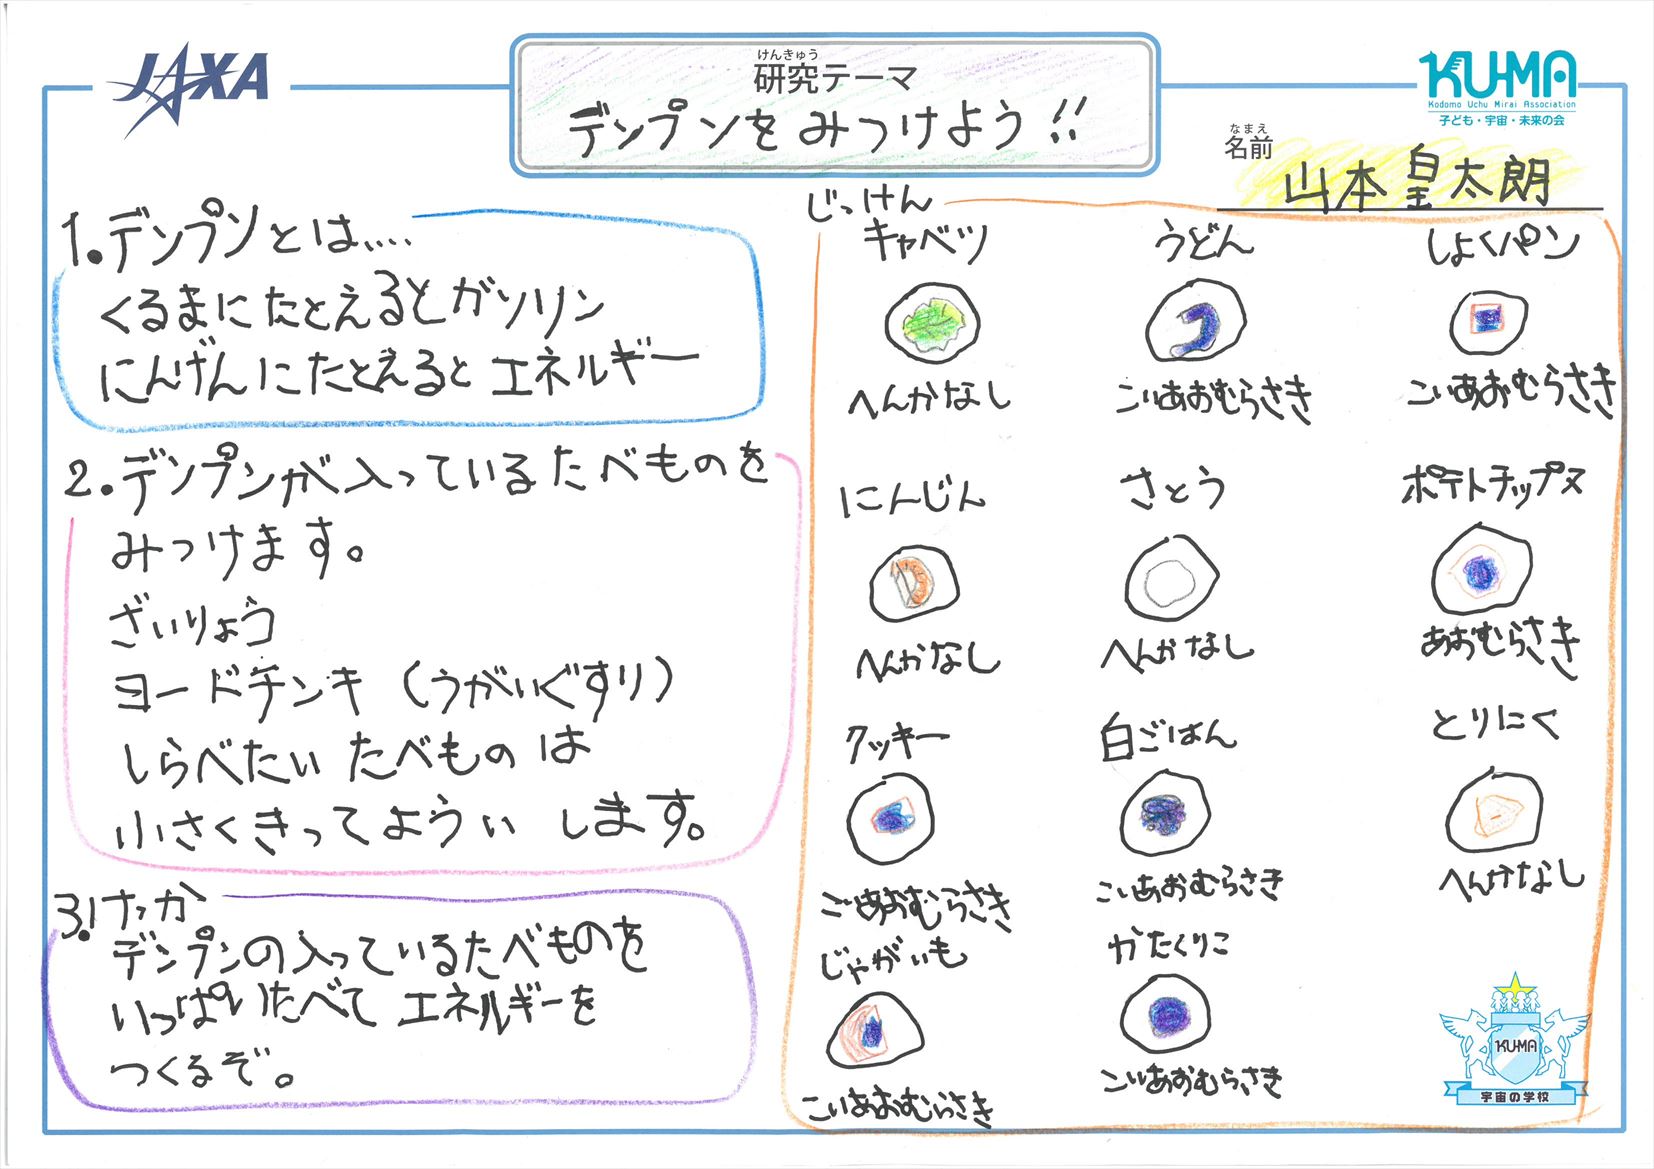 JAXA
けんきゅう
研究テーマ
デンプンをみつけよう!!
KU-MA
Kodomo Uchu Mirai Association
子ども・宇宙・未来の会
なまえ
名前
山本皇太朗
1.デンプンとは....
くるまにたとえるとガソリン
にんげんにたとえるとエネルギー
2.デンプンが入っているたべものを
みつけます。
ざいりょう
ヨードチンキ(うがいぐすり)
しらべたい たべもの は
小さくきってようい します。
3.けっか
デンプンの入っているたべものを
いっぱいたべて エネルギーを
つくるぞ。
じっけん
キャベツ うどん しょくパン
へんかなし こいあおむらさき こいあおむらさき
にんじん さとう ポテトチップス
へんかなし へんかなし あおむらさき
クッキー 白ごはん とりにく
こいあおむらさき こいあおむらさき へんかなし
じゃがいも かたくりこ
こいあおむらさき こいあおむらさき
KU-MA
宇宙の学校